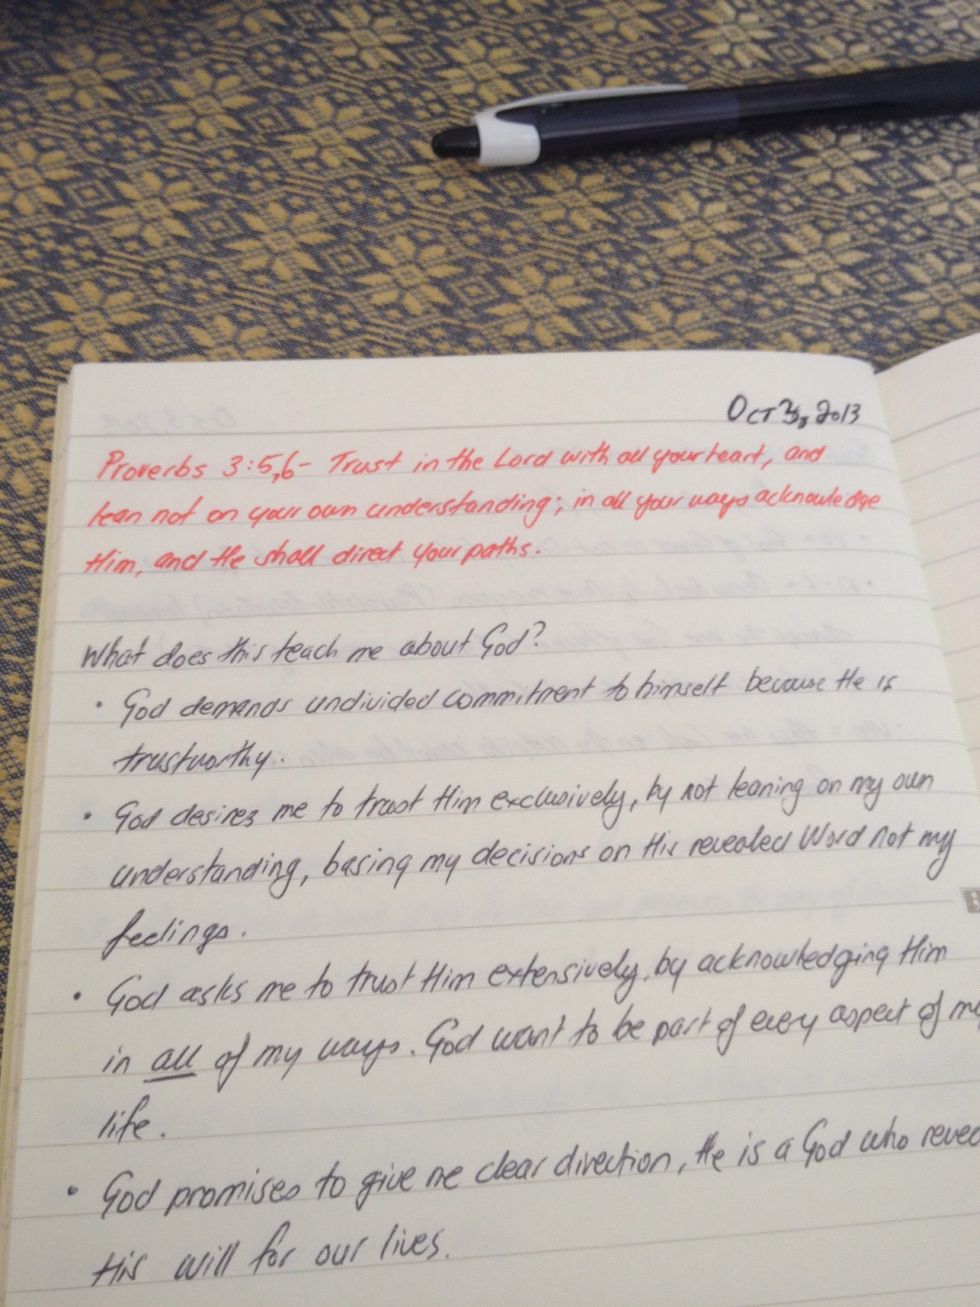 Oct 3, 2013
Proverbs 3:5,6- Trust in the Lord with all your heart, and
lean not on your own understanding; in all your ways acknowledge
Him, and He shall direct your paths.
What does this teach me about God?
• God demands undivided commitment to himself because He is
trustworthy.
• God desires me to trust Him exclusively, by not leaning on my own
understanding, basing my decisions on His revealed Word not my
feelings.
• God asks me to trust Him extensively, by acknowledging Him
in all of my ways. God want to be part of every aspect of my
life.
• God promises to give me clear direction, He is a God who revea
His will for our lives.